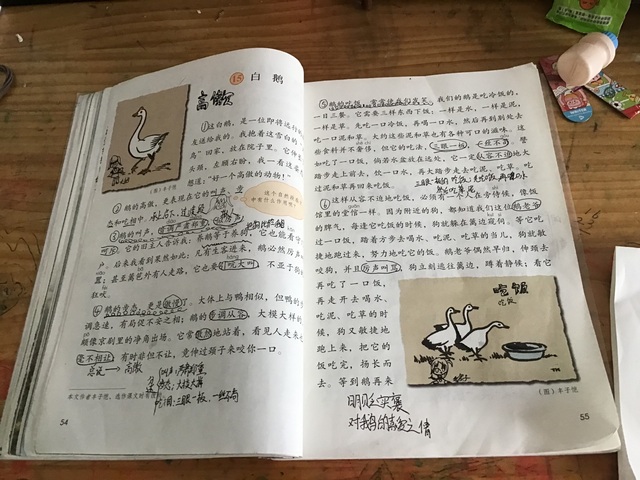 15 白鹅
高傲
①这白鹅，是一位即将远行的
友送给我的。我抱着这雪白的
鸟”回家，放在院子里。它伸长
头颈，左顾右盼，我一看这姿
想道：“好一个高傲的动物！”
②鹅的高傲，更表现在它的叫声、
态和吃相中。
承上启下，过渡段
③鹅的叫声，音调严肃郑重，
叫司。它的旧主人告诉我：养鹅等于养狗，它也能看守
户。后来我看到果然如此：凡有生客进来，鹅必然厉声
嚣；甚至篱笆外有人走路，它也要引吭大叫，不亚于狗
狂吠。
④鹅的步态，更是傲慢了。大体上与鸭相似，但鸭的
调急速，有局促不安之相；鹅的步调从容，大模大样的
颇像京剧里的净角出场。它常傲然地站着，看见人走来
毫不相让；有时非但不让，竟伸过颈子来咬你一口。
总说→高傲
叫声：严肃郑重
步态：大模大样
吃相：三眼一板、一丝不苟
本文作者丰子恺，选作课文时有改动。
54
（画）丰子恺
⑤鹅的吃饭，常常使我们发笑。我们的鹅是吃冷饭的，
一日三餐。它需要三样东西下饭：一样是水，一样是泥，
一样是草。先吃一口冷饭，再喝一口水，然后再到别处去
吃一口泥和草。大约这些泥和草也有各种可口的滋味。这
些食料并不奢侈，但它的吃法，三眼一板，一丝不苟。譬
如吃了一口饭，倘若水盆放在远处，它一定从容不迫地大
踏步走上前去，饮一口水，再大踏步走去吃泥、吃草。吃
过泥和草再回来吃饭。
⑥这样从容不迫地吃饭，必须有一个人在旁侍候，像饭
馆里的堂倌一样。因为附近的狗，都知道我们这位鹅老爷
的脾气，每逢它吃饭的时候，狗就躲在篱边窥伺。等它吃
过一口饭，踏着方步去喝水、吃泥、吃草的当儿，狗就敏
捷地跑过来，努力地吃它的饭。鹅老爷偶然早归，伸颈去
咬狗，并且厉声叫骂，狗立刻逃往篱边，蹲着静候；看它
再吃了一口饭，
再走开去喝水、
吃泥、吃草的时
候，狗又敏捷地
跑上来，把它的
饭吃完，扬长而
去。等到鹅再来
吃饭
（画）丰子恺
明贬实褒
对我白鹅的喜爱之情
55